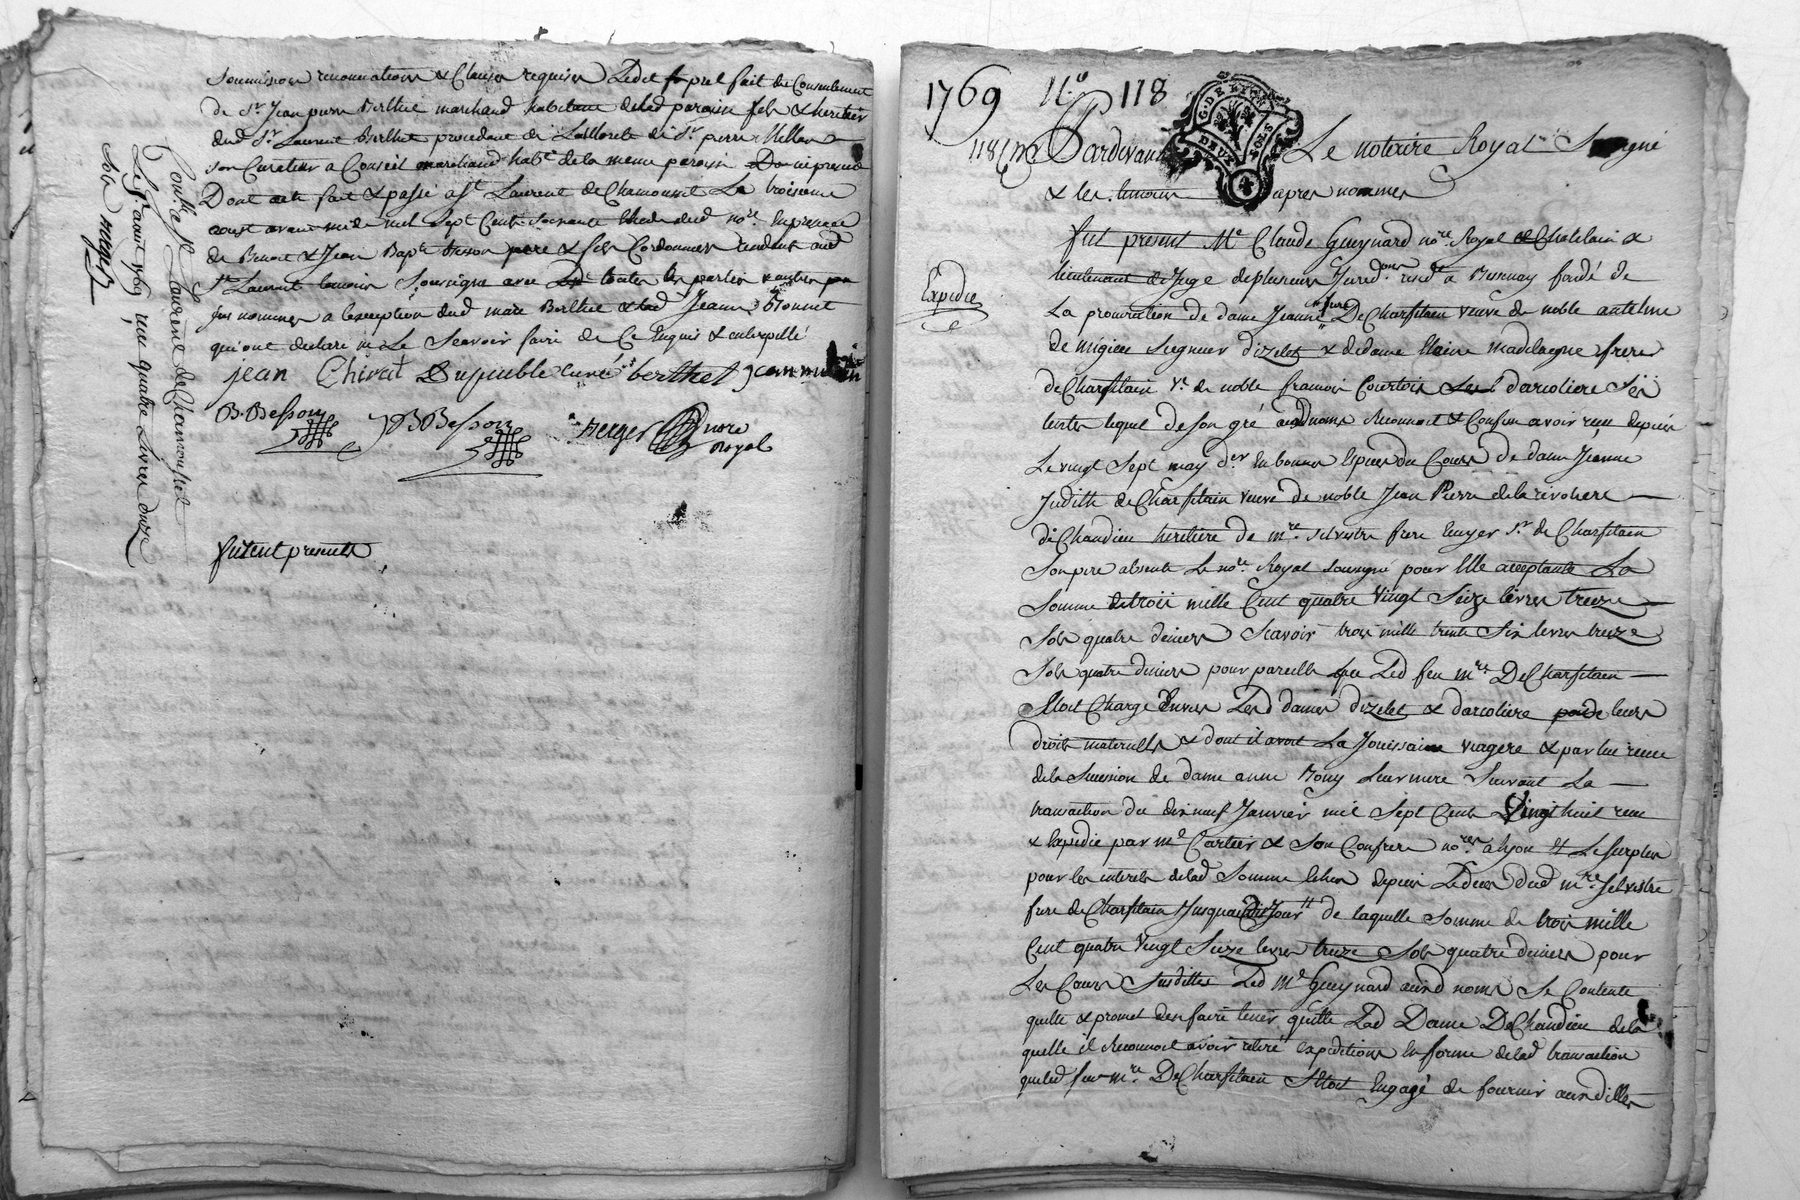 soumission renonciations & Clauses requises Led. fait du Consentement
de Sr. Jean pierre Berthet marchand habitant delad paroisse fils & heritier
dud Sr. Laurent Berthet procedant de Lauthorité de Sr. pierre
son Curateur a Conseil marchand habt. de la meme paroisse
Dont acte fait & passé a St. Laurent de Chamousset Le troisieme
aoust avant midi mil sept Cents soixante neuf en presence
de Benoit & Jean Bapte. Besson pere & fils Cordonniers aud
St. Laurent temoins Soussignés avec toutes les parties
nommes a lexception dud Berthet & lad Jeanne
qui ont declaré ne Le Scavoir faire de Ce Enquis & interpellé
jean Chirat Dupeuble curé berthet
B. Besson JB Besson
Verger nore
Royal
furent presents
Conllé. a St. Laurent de Chamousset
Le 5e. aout 1769, reçu quatre Livres onze
sols Verger
1769 N.o 118
118 Dardevant Le notaire Royal Soussigné
G. DE LYON
DEUX SOLS
& les temoins apres nommes
fut present Me Claude Gueynard nore. Royal & Chatelain &
lieutenant de Juge de plusieurs Juridons residt a fondé de
Expedié
La procuration de dame Jeanne frere De Charfetain veuve de noble antelme
de migieu Seigneur dizelet & de dame Claire magdelaine frere
de Charfetain ve. de noble francois Courtois darcoliere
lequel de son gré auxd noms Reconnoit & Confesse avoir reçu depuis
Le vingt Sept may der. En bonnes Especes du Cours de dame Jeanne
Judith de Charfetain veuve de noble Jean Pierre delarivoliere
de Chandieu heritiere de mre. silvestre frere Ecuyer Sr. de Charfetain
Son pere absente Le nore. Royal soussigné pour Elle acceptante La
Somme de trois mille Cent quatre Vingt Seize livres treize
sols quatre deniers Scavoir trois mille trente Six livres treize
Sols quatre deniers pour pareille que Led feu mre. De Charfetain
Etoit Chargé Envers Lesd dames dizelet & darcoliere pour leurs
droits maternels & dont il avoit La Jouissance viagere & par lui reçue
de la Succession de dame anne Leur mere Suivant La
transaction du dixneuf Janvier mil Sept Cents Vingt huit reçue
& Expediée par Me Cartier & Son Confrere nores. a lyon & Le surplus
pour les interets delad Somme Echus depuis Le deces dud mre. Silvestre
frere de Charfetain Jusquaudit Jour de laquelle somme de trois mille
Cent quatre Vingt Seize livres treize Sols quatre deniers pour
Les Causes Susdittes Led Me Gueynard auxd noms Se Contente
quitte & promet den faire tenir quitte Lad Dame De Chandieu dela
quelle il Reconnoit avoir retiré expedition En forme delad transaction
que led feu mre. De Charfetain Etoit Engagé de fournir auxdittes